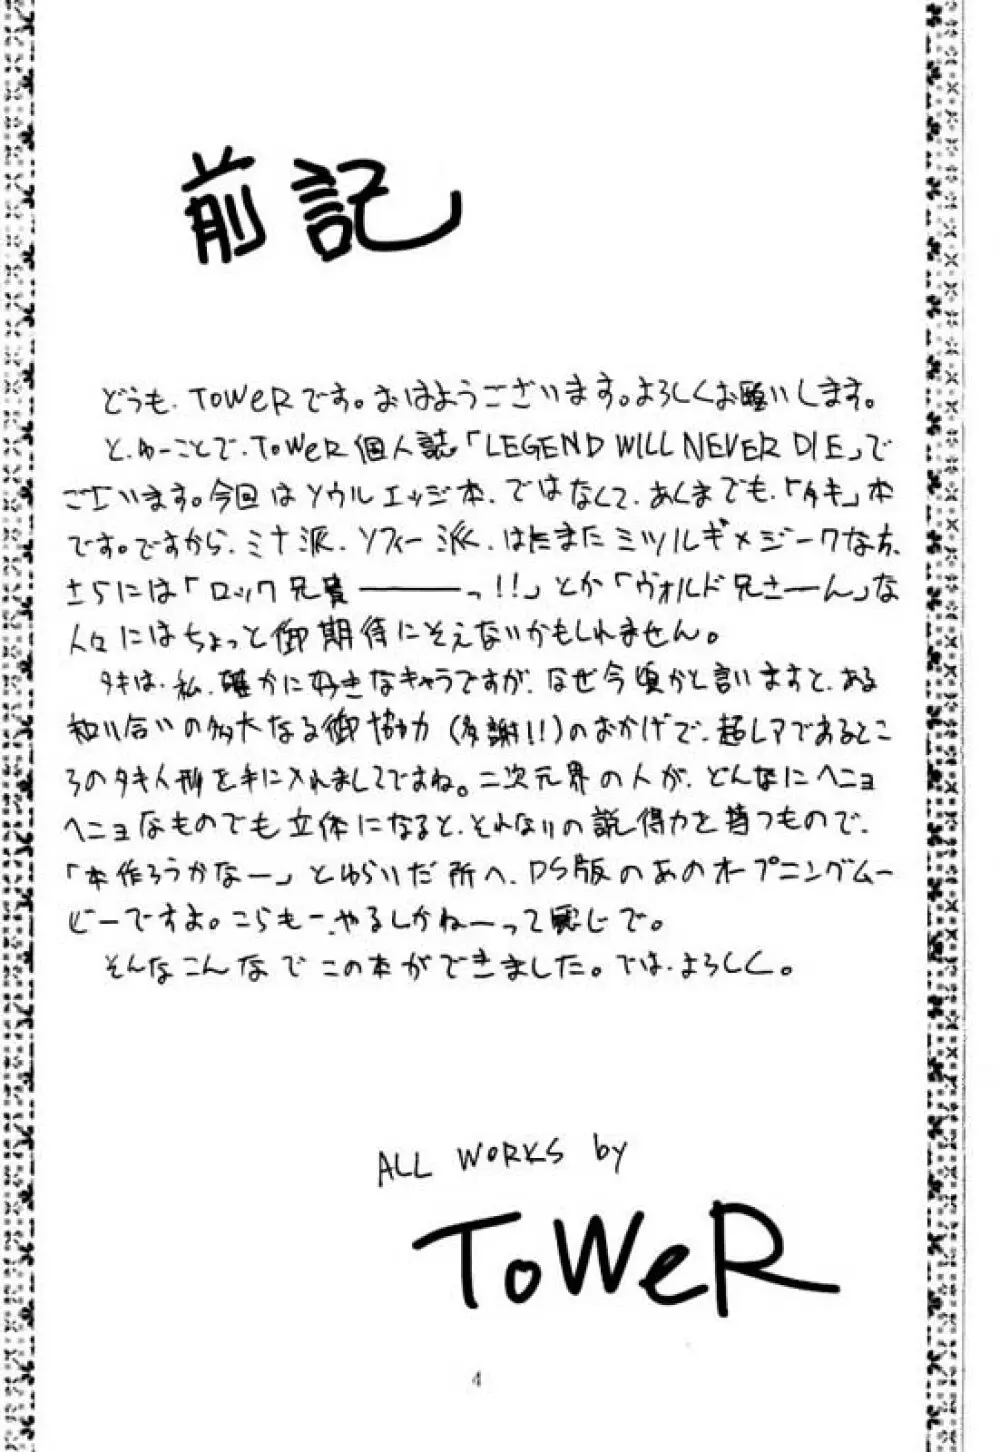 前記
どうも、ToWeRです。おはようございます。よろしくお願いします。
と、ゆーことで、ToWeR個人誌「LEGEND WILL NEVER DIE」で
ございます。今回はソウルエッジ本、ではなくて、あくまでも、「タキ」本
です。ですから、ミナ派、ソフィー派、はたまたミツルギ×ジークな方、
さらには「ロック兄貴———っ!!」とか「ヴォルド兄さーん」な
人々にはちょっと御期待にそえないかもしれません。
タキは、私、確かに好きなキャラですが、なぜ今頃かと言いますと、ある
知り合いの多大なる御協力(多謝!!)のおかげで、超レアであるとこ
ろのタキ人形を手に入れましてですね。二次元界の人が、どんなにヘニョ
ヘニョなものでも立体になると、それなりの説得力を持つもので、
「本作ろうかなー」とゆらいだ所へ、PS版のあのオープニングムー
ビーですよ。こらもー、やるしかねーって感じで。
そんなこんなでこの本ができました。では、よろしく。
ALL WORKS by
ToWeR
4